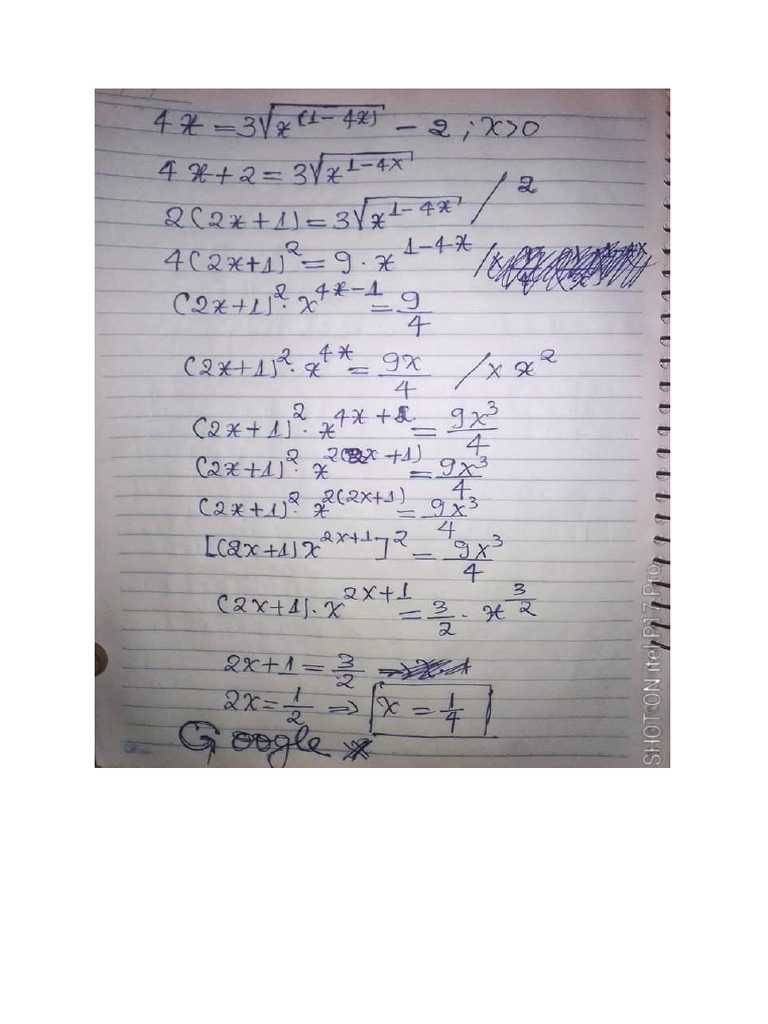 4x = 3√x^(1-4x) - 2 ; x>0
4x + 2 = 3√x^1-4x
2(2x+1) = 3√x^1-4x / 2
4(2x+1)^2 = 9 · x^1-4x /
(2x+1)^2 · x^4x-1 = 9/4
(2x+1)^2 · x^4x = 9x/4 / x x^2
(2x+1)^2 · x^4x+2 = 9x^3/4
(2x+1)^2 · x^2(2x+1) = 9x^3/4
(2x+1)^2 · x^2(2x+1) = 9x^3/4
[(2x+1)x^2x+1]^2 = 9x^3/4
(2x+1) · x^2x+1 = 3/2 · x^3/2
2x+1 = 3/2
2x = 1/2 => x = 1/4
Google x
SHOT ON itel P17 Pro